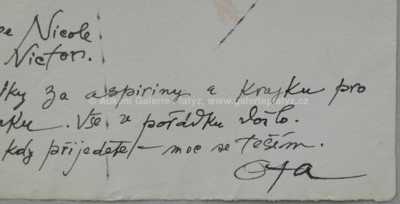 Nicole
Victor.
ky za aspiriny a krajku pro
© Aukční Galerie Platýz, www.galerieplatyz.cz
ku. Vše v pořádku došlo.
kdy přijedete – moc se těším.
Ota